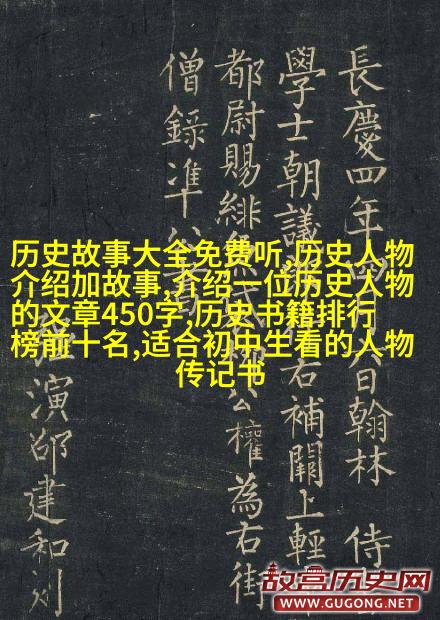 長慶四年日翰林侍
學士朝議右補闕上輕
都尉賜緋公權為右街
僧錄准
演邵建和刻
历史故事大全免费听,历史人物
介绍加故事,介绍一位历史人物
的文章450字,历史书籍排行
榜前十名,适合初中生看的人物
传记书
故宫历史网
WWW.GUGONG.NET